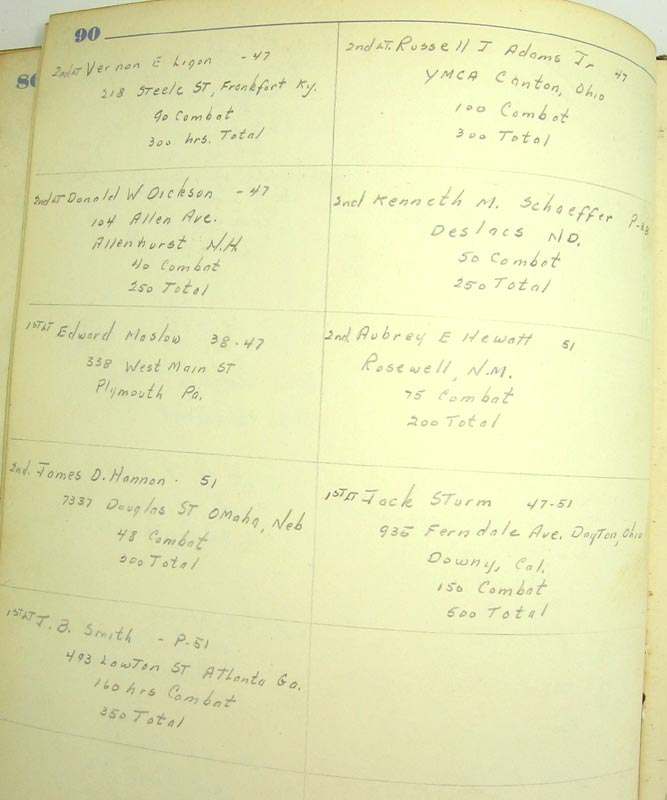 90
2nd LT Vernon E Ligon - 47
218 Steele ST, Frankfort Ky.
90 Combat
300 hrs. Total
2nd LT. Russell J Adams Jr 47
YMCA Canton, Ohio
100 Combat
300 Total
2nd LT Donald W Dickson - 47
104 Allen Ave.
Allenhurst N.H.
40 Combat
250 Total
2nd Kenneth M. Schaeffer P-38
Deslacs ND.
50 Combat
250 Total
1ST LT Edward Maslow 38-47
338 West Main ST
Plymouth Pa.
2nd Aubrey E Hewatt 51
Rosewell, N.M.
75 Combat
200 Total
2nd. James D. Hannon. 51
7337 Douglas ST OMaha, Neb
48 Combat
Total
1ST LT Jack STurm 47-51
935 Ferndale Ave. DayTon, Ohio
Downy, Cal.
150 Combat
500 Total
1ST LT J. B. Smith - P-51
493 LawTon ST ATlanta Ga.
160 hrs Combat
350 Total